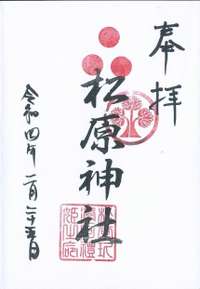 奉拝
松原神社
令和四年二月二十五日